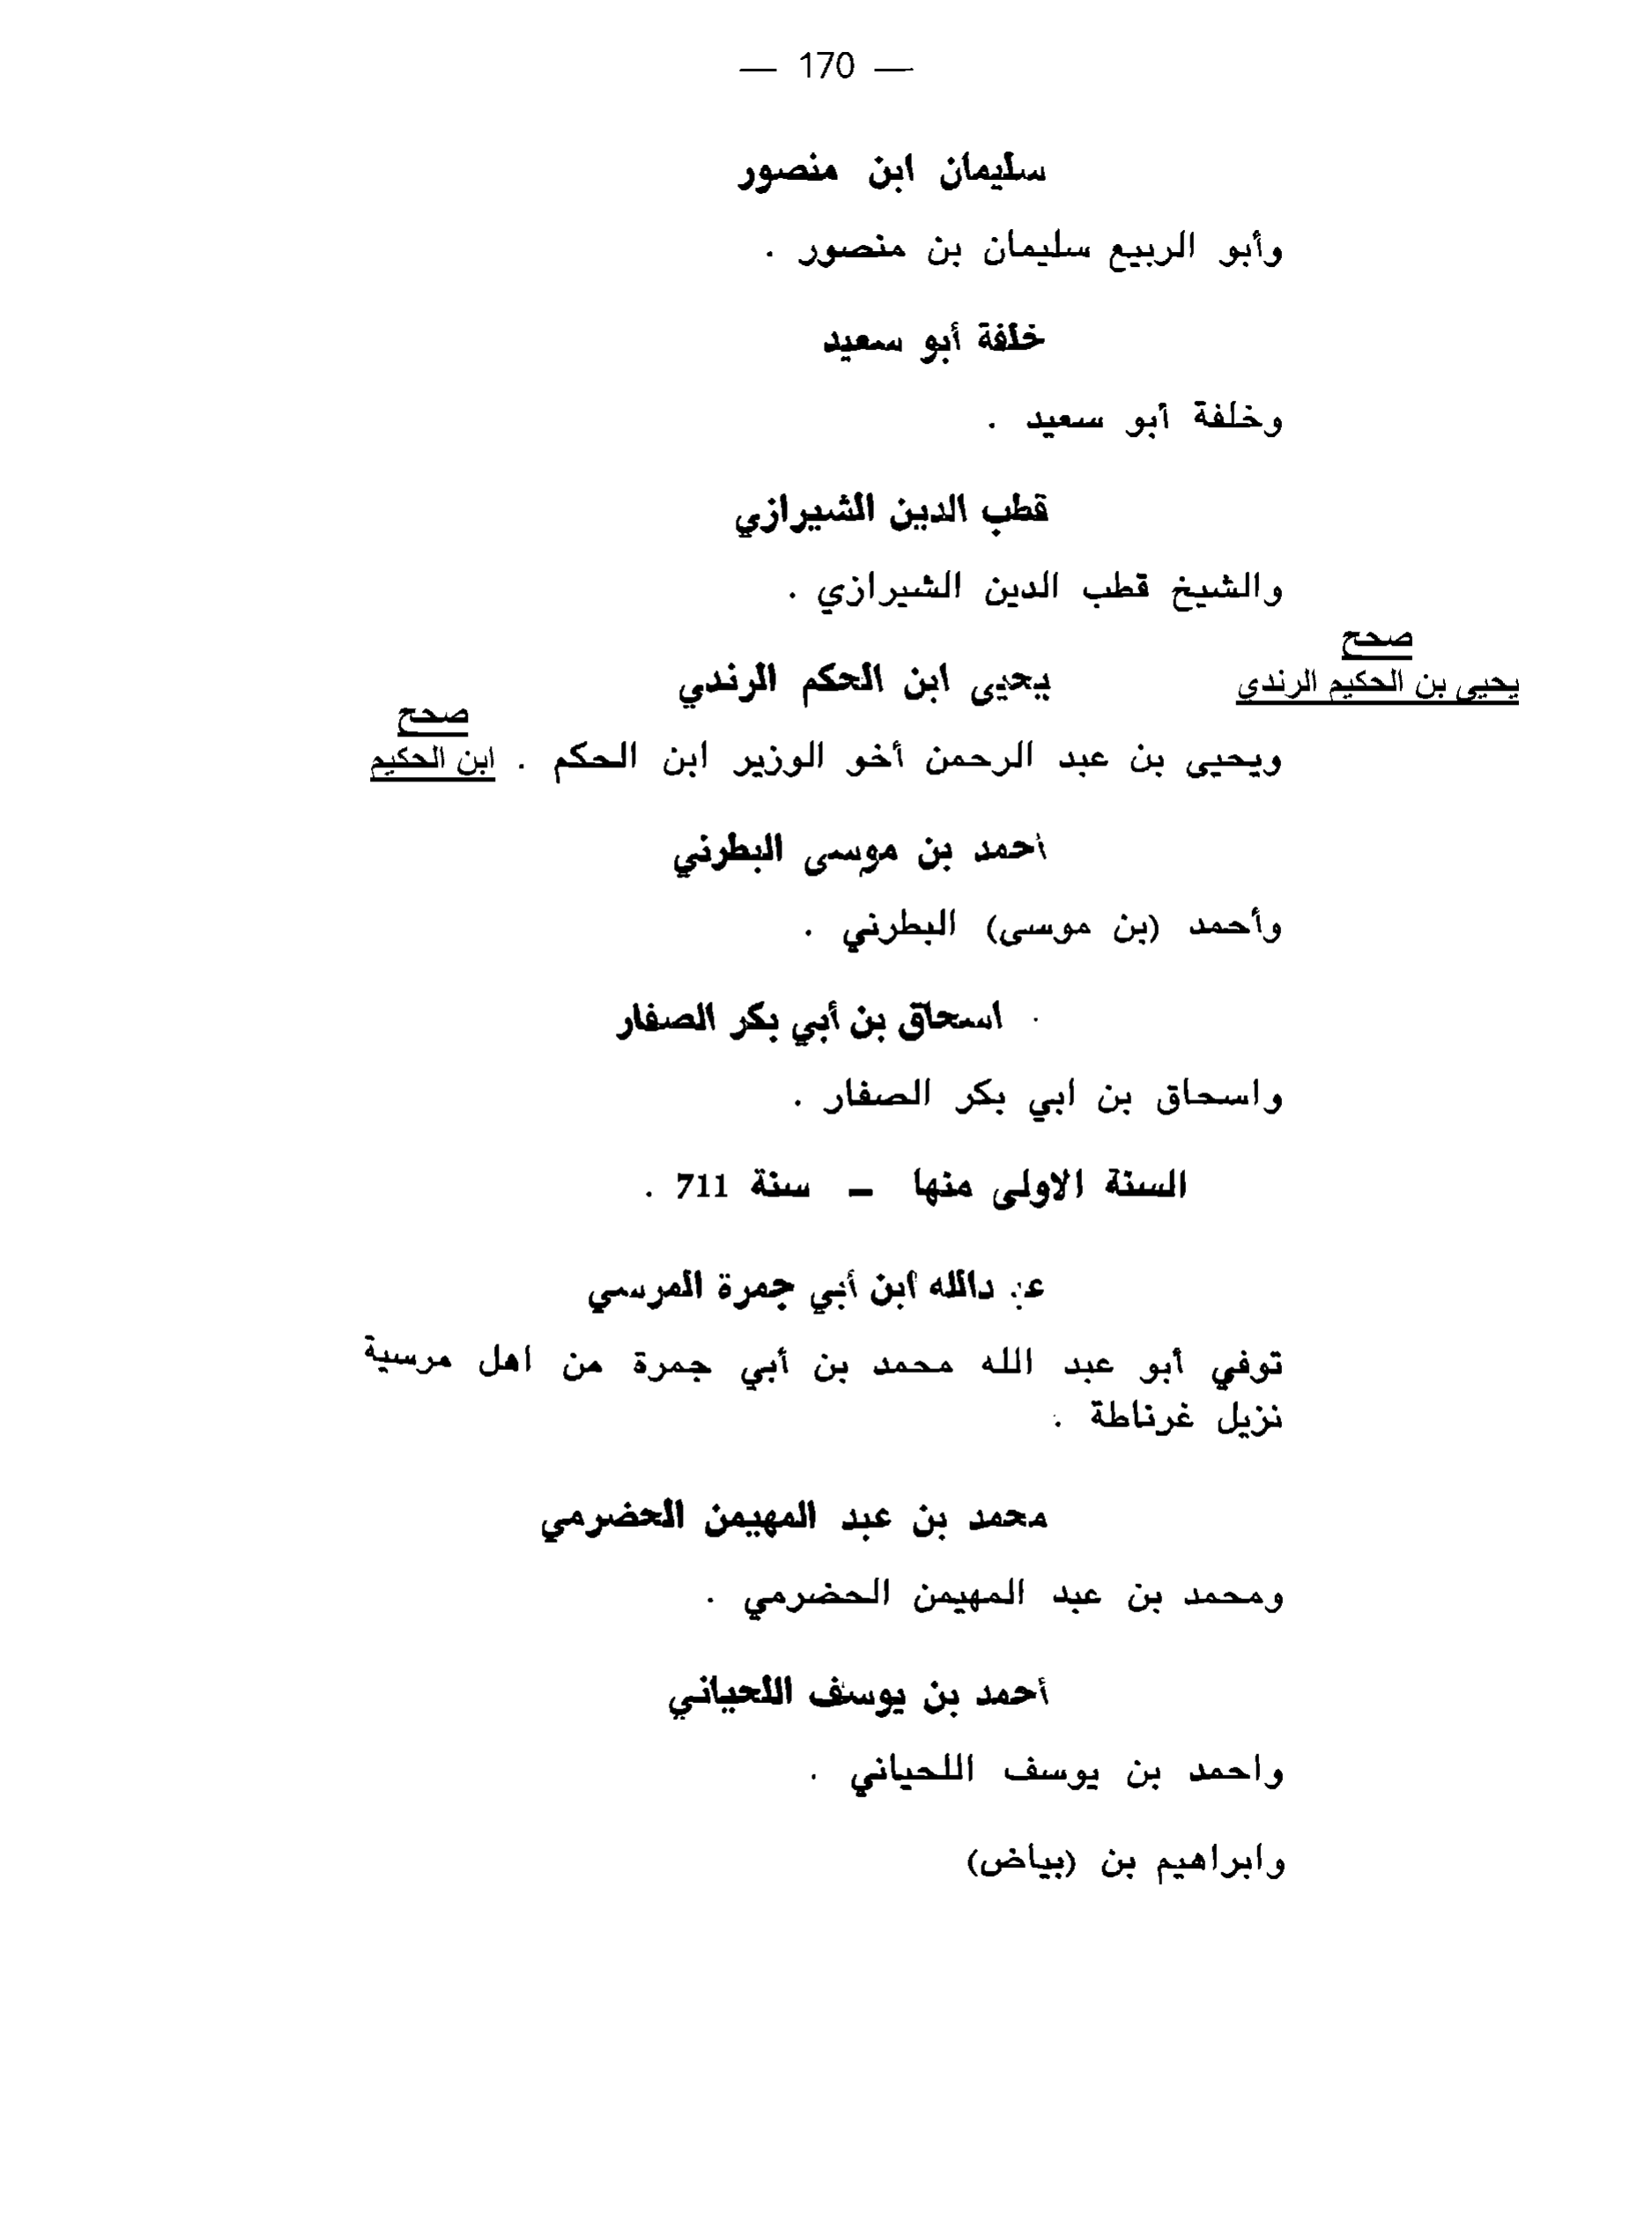 — 170 —
سليمان ابن منصور
وأبو الربيع سليمان بن منصور .
خلفة أبو سعيد
وخلفة أبو سعيد .
قطب الدين الشيرازي
والشيخ قطب الدين الشيرازي .
صحح
يحيى بن الحكيم الرندي
يحيى ابن الحكم الرندي
صحح
ويحيى بن عبد الرحمن أخو الوزير ابن الحكم . ابن الحكيم
احمد بن موسى البطرني
وأحمد (بن موسى) البطرني .
اسحاق بن أبي بكر الصفار
واسحاق بن ابي بكر الصفار .
السنة الاولى منها – سنة 711 .
عبدالله ابن أبي جمرة المرسي
توفي أبو عبد الله محمد بن أبي جمرة من اهل مرسية
نزيل غرناطة .
محمد بن عبد المهيمن الحضرمي
ومحمد بن عبد المهيمن الحضرمي .
أحمد بن يوسف اللحياني
واحمد بن يوسف اللحياني .
وابراهيم بن (بياض)